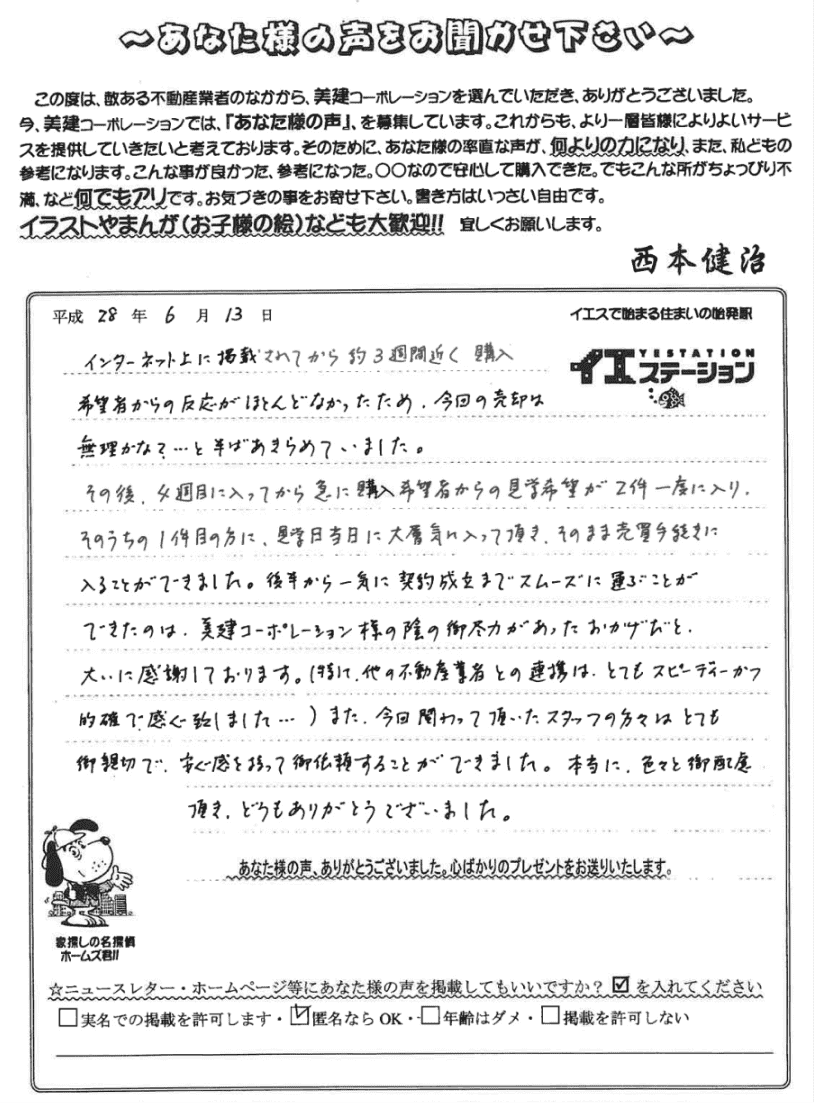 ～あなた様の声をお聞かせ下さい～
この度は、数ある不動産業者のなかから、美建コーポレーションを選んでいただき、ありがとうございました。
今、美建コーポレーションでは、『あなた様の声』、を募集しています。これからも、より一層皆様によりよいサービ
スを提供していきたいと考えております。そのために、あなた様の率直な声が、何よりの力になり、また、私どもの
参考になります。こんな事が良かった、参考になった。〇〇なので安心して購入できた。でもこんな所がちょっぴり不
満、など何でもアリです。お気づきの事をお寄せ下さい。書き方はいっさい自由です。
イラストやまんが(お子様の絵)なども大歓迎!! 宜しくお願いします。
西本健治
平成 28 年 6 月 13 日
イエスで始まる住まいの始発駅
YESTATION
イエステーション
インターネット上に掲載されてから約3週間近く購入
希望者からの反応がほとんどなかったため、今回の売却は
無理かな?…と半ばあきらめていました。
その後、4週目に入ってから急に購入希望者からの見学希望が2件一度に入り、
そのうちの1件目の方に、見学日当日に大層気に入って頂き、そのまま売買手続きに
入ることができました。後半から一気に契約成立までスムーズに運ぶことが
できたのは、美建コーポレーション様の陰の御尽力があったおかげだと、
大いに感謝しております。(特に、他の不動産業者との連携は、とてもスピーディーかつ
的確で感心致しました…)また、今回関わって頂いたスタッフの方々はとても
御親切で、安心感を持って御依頼することができました。本当に、色々と御配慮
頂き、どうもありがとうございました。
あなた様の声、ありがとうございました。心ばかりのプレゼントをお送りいたします。
家探しの名探偵
ホームズ君!!
☆ニュースレター・ホームページ等にあなた様の声を掲載してもいいですか?☑を入れてください
□実名での掲載を許可します・☑匿名ならOK・□年齢はダメ・□掲載を許可しない